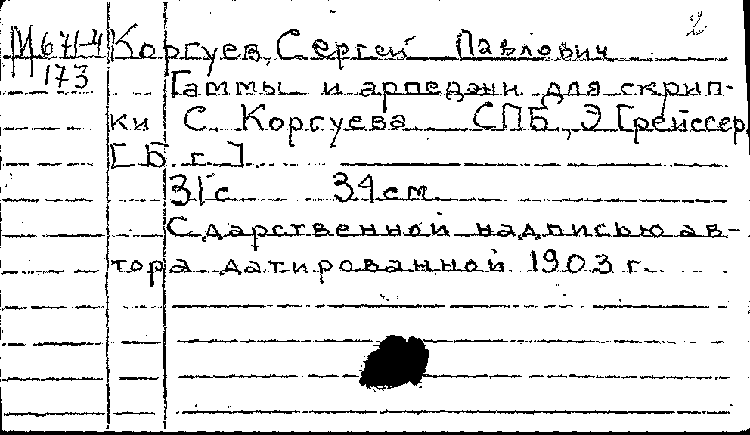 2
М 671-4 Коргуев, Сергей Павлович
173 Гаммы и арпеджи для скрип-
ки С. Коргуева СПБ, Э Грейссер,
[Б. г.]
31 с 34 см.
С дарственной надписью ав-
тора датированной 1903 г.